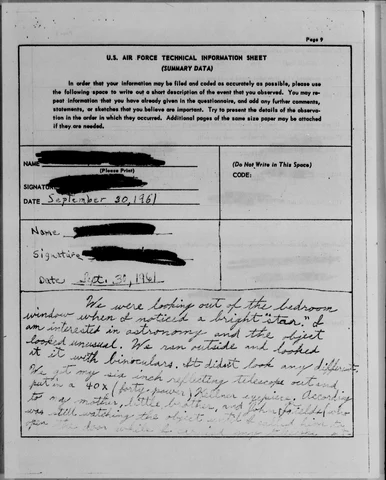 Page 9
U.S. AIR FORCE TECHNICAL INFORMATION SHEET
(SUMMARY DATA)
In order that your information may be filed and coded as accurately as possible, please use
the following space to write out a short description of the event that you observed. You may re-
peat information that you have already given in the questionnaire, and add any further comments,
statements, or sketches that you believe are important. Try to present the details of the observa-
tion in the order in which they occurred. Additional pages of the same size paper may be attached
if they are needed.
NAME
(Please Print)
SIGNATURE
DATE September 20, 1961
(Do Not Write in This Space)
CODE:
Name
Signature
Date Sept. 21, 1961
We were looking out of the bedroom
window when I noticed a bright "star." I
am interested in astronomy and the object
looked unusual. We ran outside and looked
at it with binoculars. It didn't look any different.
We got my six inch reflecting telescope out and
put in a 40X (forty power) Kellner eyepiece. According
to my mother, little brother, and John
was still watching the object until I called him to
open the door while I carried my